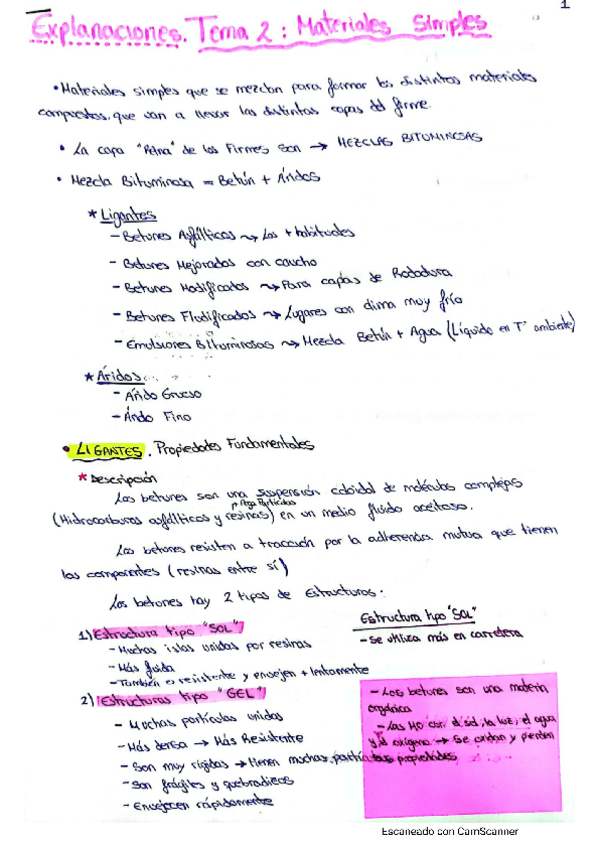 1
Explanaciones. Tema 2: Materiales Simples
• Materiales simples que se mezclan para formar los distintos materiales
compuestos, que van a llevar las distintas capas del firme.
• La capa "Reina" de los Firmes son → MEZCLAS BITUMINOSAS
• Mezcla Bituminosa = Betún + Áridos
* Ligantes
- Betunes Asfálticos ⇝ Los + habituales
- Betunes Mejorados con caucho
- Betunes Modificados ⇝ Para capas de Rodadura
- Betunes Fluidificados ⇝ Lugares con clima muy frío
- Emulsiones Bituminosas ⇝ Mezcla Betún + Agua (Líquido en Tª ambiente)
* Áridos
- Árido Grueso
- Árido Fino
• LIGANTES. Propiedades Fundamentales
* Descripción
Los betunes son una suspensión coloidal de moléculas complejas
(Hidrocarburos asfálticos y resinas) en un medio fluido aceitoso.
Los betunes resisten a tracción por la adherencia mutua que tienen
los componentes (resinas entre sí)
Los betunes hay 2 tipos de Estructuras:
1) Estructura tipo "SOL"
- Muchas islas unidas por resinas
- Más fluida
- También + resistente y envejen + lentamente
Estructura tipo "SOL"
- Se utiliza más en carretera
2) Estructuras tipo "GEL"
- Muchas partículas unidas
- Más densa → Más Resistente
- Son muy rígidas → tienen muchas partículas
- Son frágiles y quebradizos
- Envejecen rápidamente
- Los betunes son una materia
orgánica
- Las MO con el sol, la luz, el agua
y el oxígeno → Se oxidan y pierden
sus propiedades
Escaneado con CamScanner